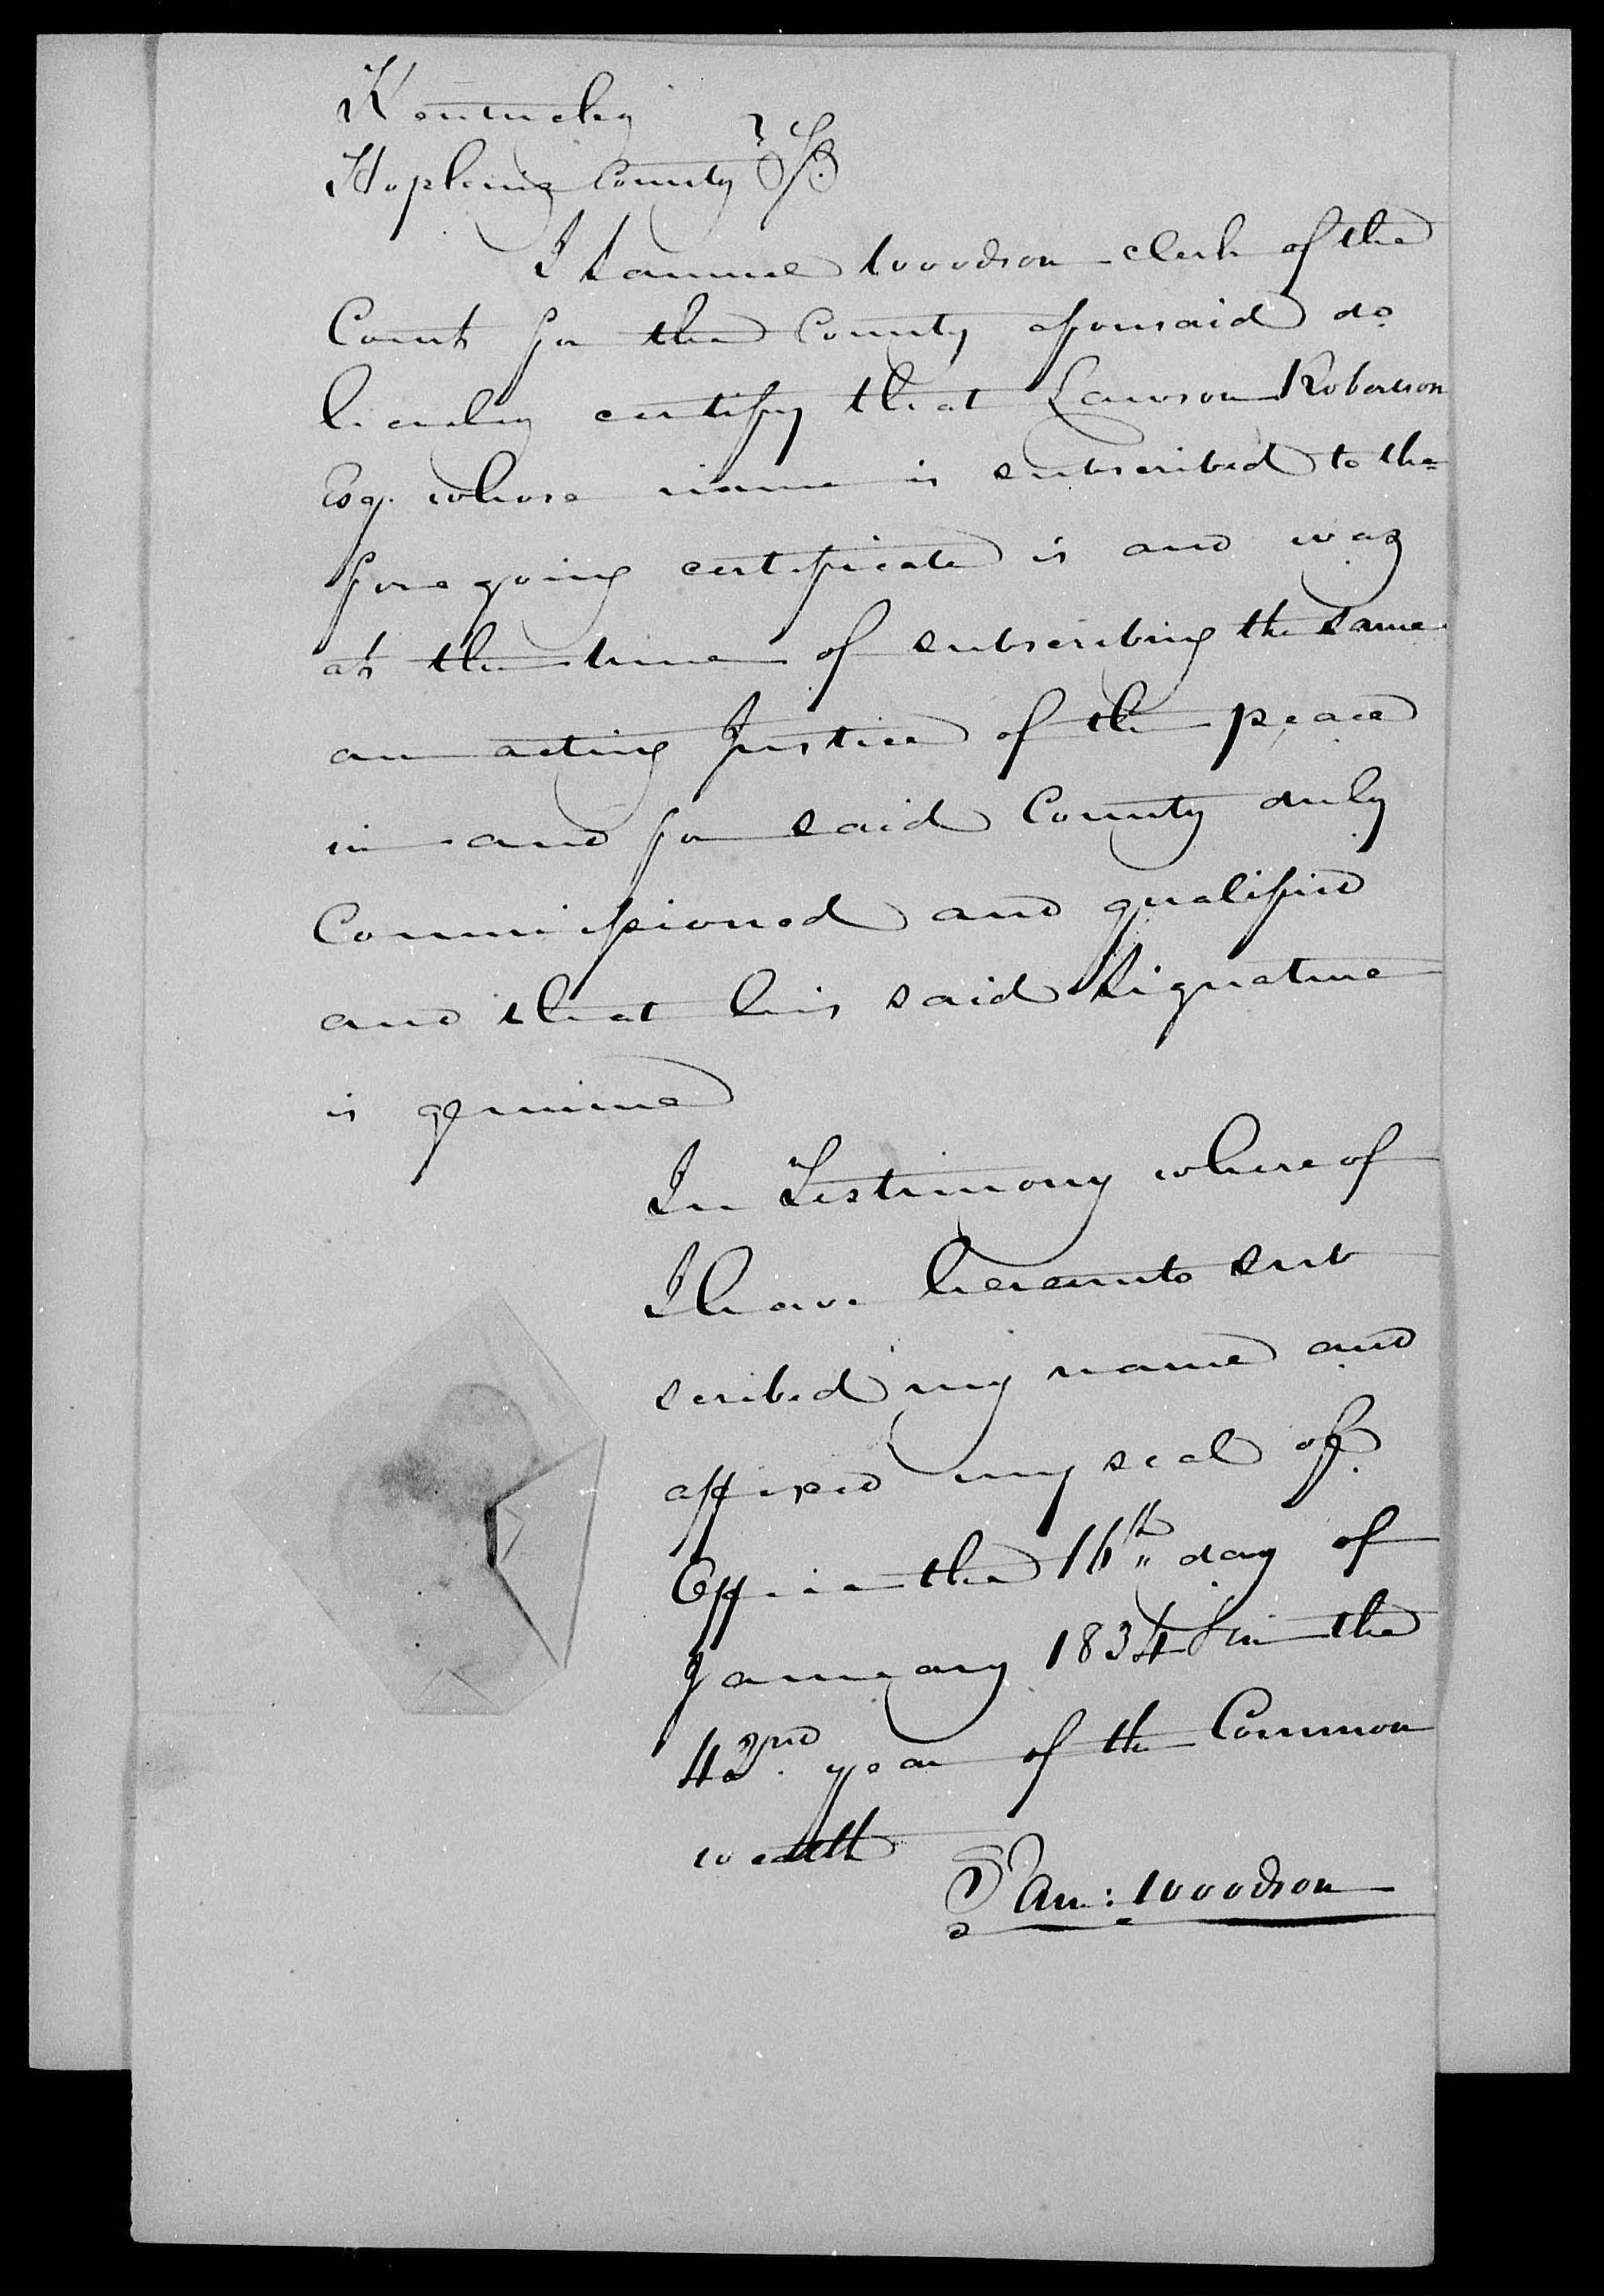 Kentucky
Hopkins County } SS.
I Samuel Woodson clerk of the
Court for the County aforesaid do
hereby certify that Lawson Roberson
Esq. whose name is subscribed to the
foregoing certificate is and was
at the time of subscribing the same
an acting Justice of the peace
in and for said County duly
Commissioned and qualified
and that his said Signature
is genuine
In Testimony whereof
I have hereunto sub
scribed my name and
affixed my seal of
Office the 16th day of
January 1834 & in the
42nd year of the Common
wealth
Sam: Woodson